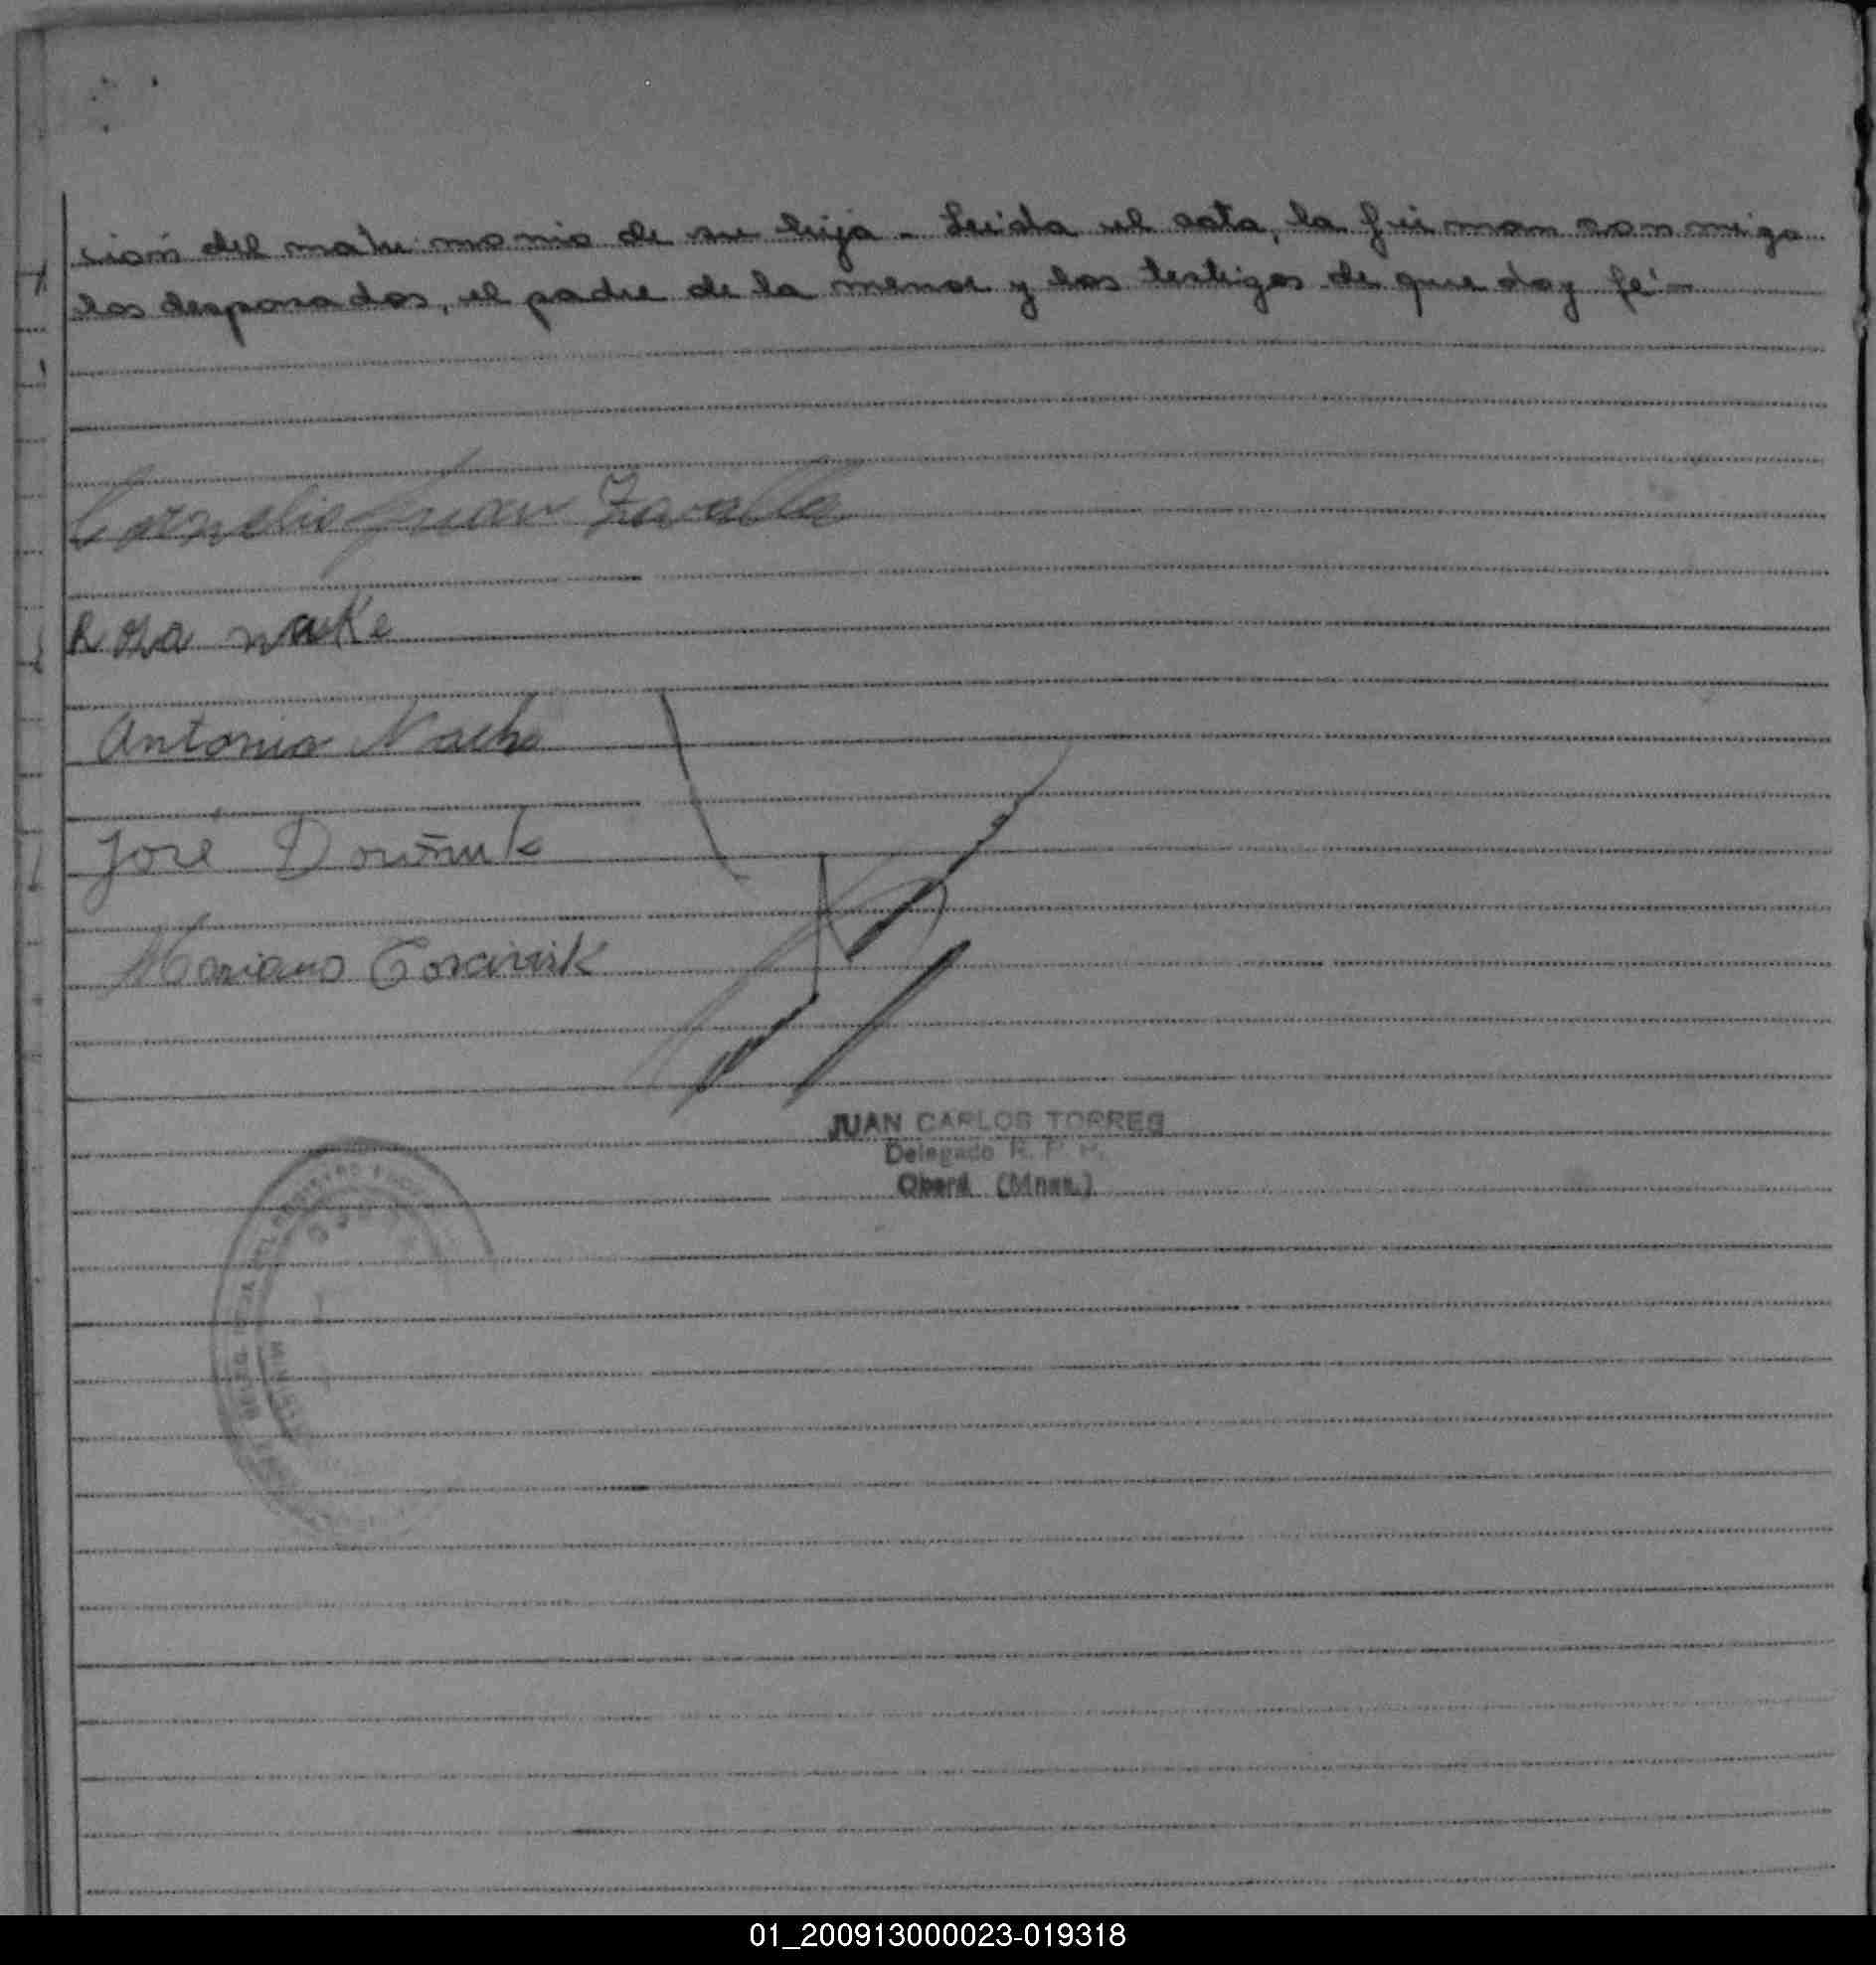 ción del matrimonio de su hija - Leida el acta, la firman conmigo
los desposados, el padre de la menor y los testigos de que doy fé
Cornelio Juan Zavalla
Rosa
Antonio
José
Mariano
JUAN CARLOS TORRES
Delegado R. P. P.
Oberá (Mnes.)
01_200913000023-019318